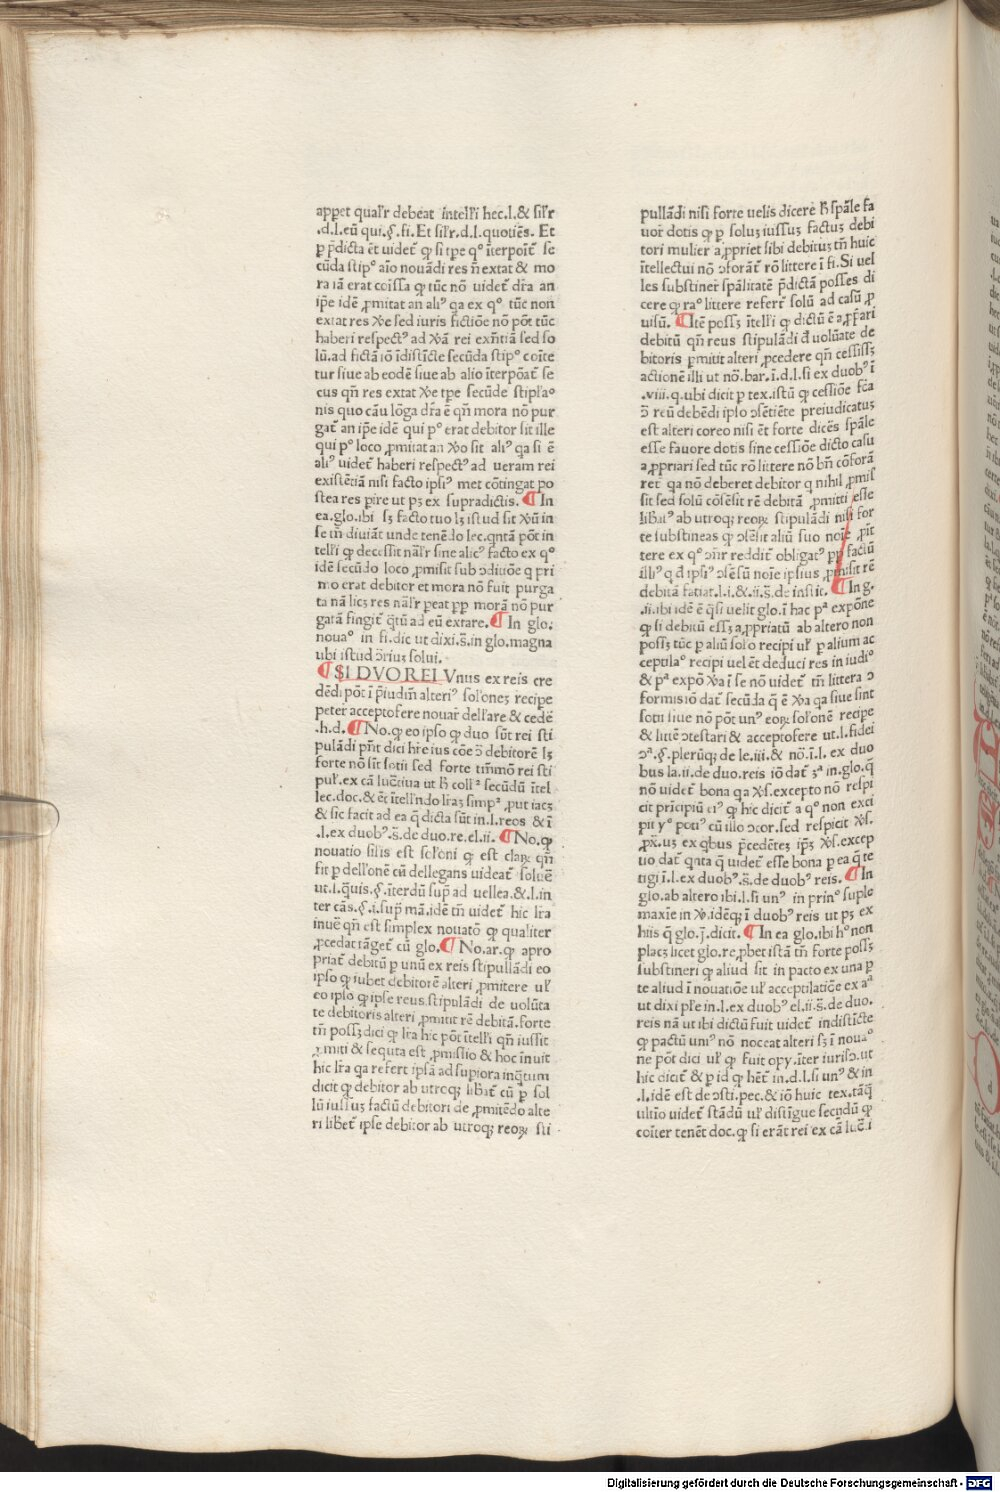 appet qual'r debeat intelł'i hec.l.& sil'r
.d.l.eū qui.§.fi.Et sil'r.d.l.quotiēs. Et
p p̄dicta ēt uidet̄ ꝙ si tpe qº īterpoīt̄ se
cūda stipº aīo nouādi res n̄ extat & mo
ra iā erat cōissa ꝙ tūc nō uidet̄ dr̄a an
ip̄e idē ꝓmitat an aliꝰ ga ex qº tūc non
extat res ꝟe sed iuris fictiōe nō pōt tūc
haberi respectꝰ ad ꝟā rei exn̄tiā sed so
lū.ad fictā iō īdistīcte secūda stipº coīte
tur siue ab eodē siue ab alio īterpōat̄ se
cus qn̄ res extat ꝟe tpe secūde stipl'aº
nis quo cāu lōga dr̄a ē qn̄ mora nō pur
gat̄ an ip̄e idē qui pº erat debitor sit ille
qui pº loco ꝓmitat an ꝟo sit aliꝰ qa si ē
aliꝰ uidet̄ haberi respectꝰ ad ueram rei
existētiā nisi facto ipsiꝰ met cōtingat po
stea res pire ut pꝫ ex supradictis. ¶ In
ea.glo.ibi sꝫ facto tuo lꝫ istud sit ꝟū in
se tn̄ diuiāt unde tenēdo lec.qntā pōt in
telł'i ꝙ decessit nāl'r sine alicꝰ facto ex qº
idē secūdo loco ꝓmisit sub ↄditiōe q pri
mo erat debitor et mora nō fuit purga
ta nā licꝫ res nāl'r peat pp morā nō pur
gatā fingit̄ q̄tū ad eū extare. ¶ In glo.
nouaº in fi.dic ut dixi.s̄.in glo.magna
ubi istud ↄ̄riuꝫ solui.
¶ SI DVO REI Vnus ex reis cre
dēdi pōt ī p̄iudiꝫ alteriꝰ sol'onez recipe
peter acceptofere nouar̄ dell'are & cedē
.h.d. ¶ No.ꝙ eo ipso ꝙ duo sūt rei sti
pulādi pn̄t dici hr̄e ius cōe ↄ̄ debitorē lꝫ
forte nō sīt sotii sed forte tm̄mō rei sti
pul'.ex cā lucr̄tiua ut ħ coll'ꝰ secūdū ītel
lec.doc.& ēt ītell'ndo lr̄aꝫ simpꝰ ,put iacꝫ
& sic facit ad ea q̄ dicta sūt in.l.reos & ī
.l.ex duobꝰ.s̄.de duo.re.el.ii. ¶ No.ꝙ
nouatio silis est sol'oni ꝙ est claꝝ qn̄
fit p dell'onē cū dellegans uideat̄ soluē
ut.l.q̄uis.§.īterdū sup̄ ad uellea.&.l.in
ter cās.§.i.sup̄ mā.idē tn̄ uidet̄ hic lr̄a
inuē qn̄ est simplex nouatō ꝙ qualiter
ꝓcedat tāget̄ cū glo. ¶ No.ar.ꝙ apro
priat̄ debitū p unū ex reis stipullādi eo
ipso ꝙ iubet debitorē alteri ꝓmitere ul'
eo ipso ꝙ ipse reus stipulādi de uolūta
te debitoris alteri ꝓmitit rē debitā.forte
tn̄ possꝫ dici ꝙ lr̄a hic pōt ītelł'i qn̄ iussit
ꝓmiti & sequta est ꝓmissio & hoc īnuit
hic lr̄a qa refert̄ ipsā ad supiora inq̄tum
dicit ꝙ debitor ab utroqꝫ libāt̄ cū p sol
lū iussuꝫ factū debitori de ꝓmitēdo alte
ri libet̄ ipse debitor ab utroqꝫ reoꝝ sti
pullādi nisi forte uelis dicere ħ spāle fa
uor̄ dotis ꝙ p soluꝫ iussuꝫ factuꝫ debi
tori mulier a,ppriet sibi debituꝫ tn̄ huic
ītellectui nō ↄforāt̄ rō littere ī fi.Si uel
les substiner̄ spālitatē p̄dictā posses di
cere ꝙ raº littere refert̄ solū ad casū ꝓ
uisū. ¶ Itē possꝫ ītelł'i ꝙ dictū ē a,pp̄ari
debitū qn̄ reus stipulādi đ uolūate de
bitoris ꝓmitit alteri ꝓcedere qn̄ cessissꝫ
actionē illi ut nō.bar.ī.d.l.si ex duobꝰ ī
.viii.q.ubi dicit p tex.istū ꝙ cessiōe fc̄a
ↄ̄ reū debēdi ipso ↄsētiēte preiudicatuꝫ
est alteri coreo nisi ēt forte dicēs spāle
esse fauore dotis sine cessiōe dicto casu
a,ppriari sed tūc rō littere nō bn̄ cōforā
ret̄ qa nō deberet debitor q nihil ꝓmis
sit sed solū cōsēsit rē debitā ꝓmitti esse
libatꝰ ab utroqꝫ reoꝝ stipulādi nisi for
te substineas ꝙ ↄsēsit aliū suo noīe ꝓīt
tere ex qº ↄn̄r reddit̄ obligatꝰ pp factū
illiꝰ q đ ipsiꝰ ↄsēsū noīe ipsius ꝓmisit rē
debitā fatiat.l.i.&.ii.s̄.de instit. ¶ In g.
.ii.ibi idē ē q̄si uelit glo.ī hac pᵃ expōne
ꝙ si debitū essꝫ a,ppriatū ab altero non
possꝫ tūc p aliū solo recipi ul' p alium ac
ceptulaº recipi uel ēt deduci res in iudiº
& pᵃ expō ꝟa ī se nō uidet̄ tn̄ littera ↄ
formis iō dat̄ secūda q̄ ē ꝟa qa siue sint
sotii siue nō pōt unꝰ eoꝝ sol'onē recipe
& litiē ↄtestari & acceptofere ut.l.fidei
ↄᵃ.§.plerūqꝫ de le.iii.& nō.ī.l. ex duo
bus la.ii.de duo.reis iō dat̄ 3ᵃ in.glo.q̄
nō uidet̄ bona qa ꝟs.excepto nō respi
cit prīcipiū eiꝰ ꝙ hic dicit̄ a qº non exci
pit̄ yº potiꝰ cū illo ↄcor.sed respicit ꝟs.
ꝓx.uꝫ ex qbus p̄cedētez ip̄ꝫ ꝟs.excep
tio dat̄ qnta q̄ uidet̄ esse bona p ea q̄ te
tigi ī.l.ex duobꝰ.s̄.de duobꝰ reis. ¶ In
glo.ab altero ibi.l.si unꝰ in prinº suple
maxie in ꝟ.idēqꝫ ī duobꝰ reis ut pꝫ ex
hiis q̄ glo.j̄.dicit. ¶ In ea glo.ibi hº non
placꝫ licet glo.re,pbet istā tn̄ forte possꝫ
substineri ꝙ aliud sit in pacto ex una p
te aliud ī nouatiōe ul' acceptilatiōe ex aᵃ
ut dixi pl'e in.l.ex duobꝰ el.ii.s̄.de duo.
reis nā ut ibi dictū fuit uidet̄ indistīcte
ꝙ pactū uniꝰ nō noceat alteri sꝫ ī nouaº
ne pōt dici ul' ꝙ fuit opy.īter iurisↄ.ut
hic dicit̄ & p id ꝙ hēt̄ in.d.l.si unꝰ & in
.l.idē est de ↄsti.pec.& iō huic tex.tāq̄
ultīo uidet̄ stādū ul' distīgue secūdū ꝙ
coīter tenēt doc.ꝙ si erāt rei ex cā lucē ī
Digitalisierung gefördert durch die Deutsche Forschungsgemeinschaft - DFG